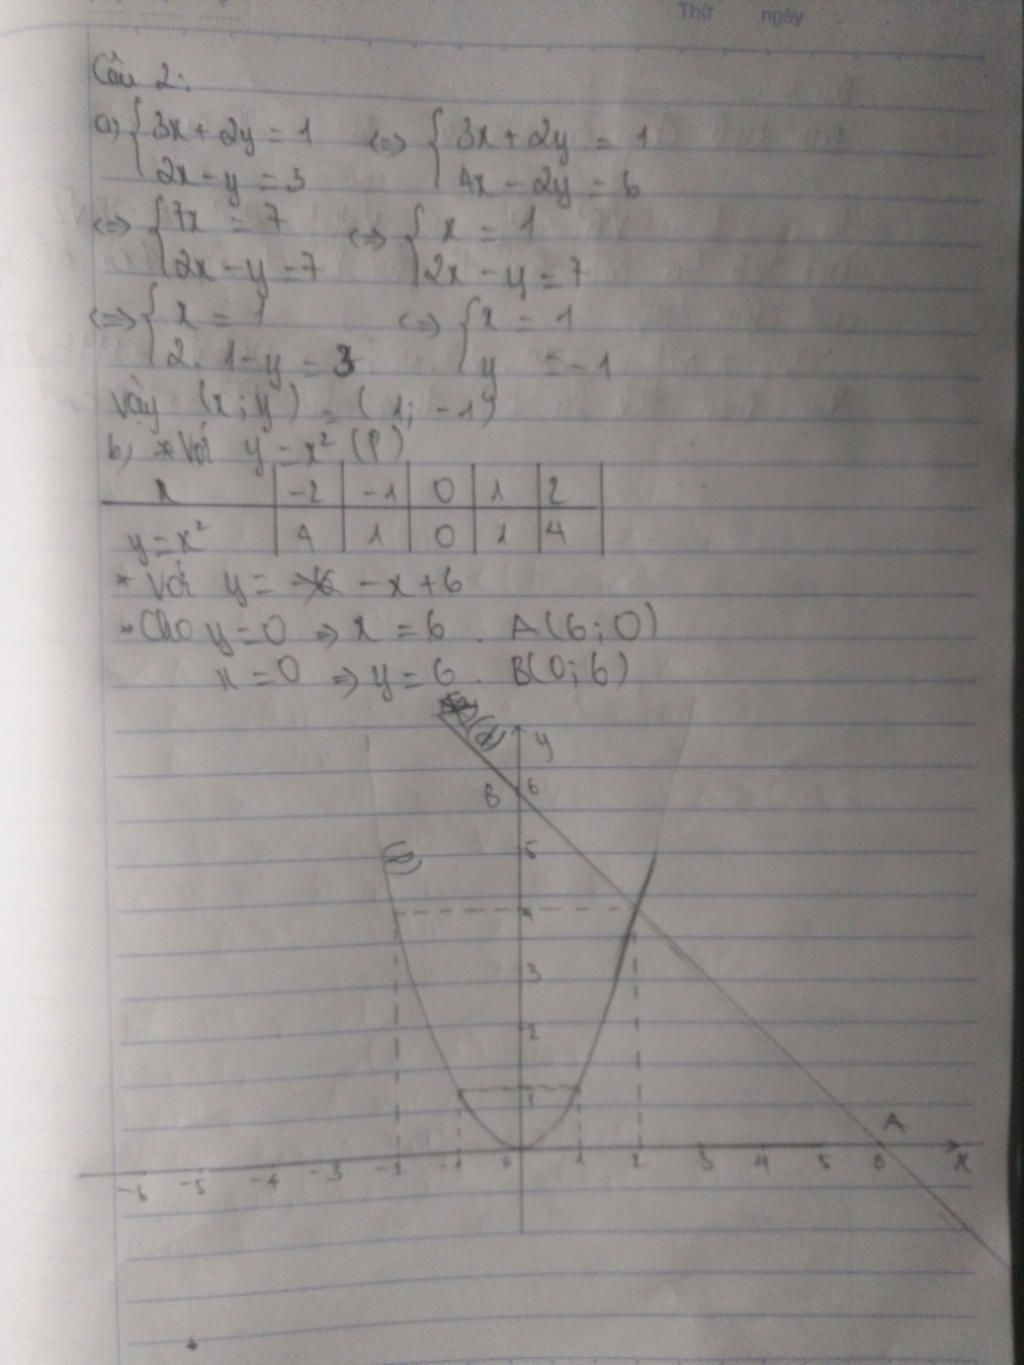 Thứ ngày
Câu 2:
a) { 3x + 2y = 1 <=> { 3x + 2y = 1
2x - y = 3 4x - 2y = 6
<=> { 7x = 7 <=> { x = 1
2x - y = 7 2x - y = 7
<=> { x = 1 <=> { x = 1
2. 1 - y = 3 y = -1
Vậy (x; y) = (1; -1)
b, * Với y = x² (P)
x -2 -1 0 1 2
y = x² 4 1 0 1 4
* Với y = -x + 6
- Cho y = 0 => x = 6 . A(6; 0)
x = 0 => y = 6 . B(0; 6)
(d) y
B 6
5
4
3
2
1
A
-6 -5 -4 -3 -2 -1 0 1 2 3 4 5 6 x